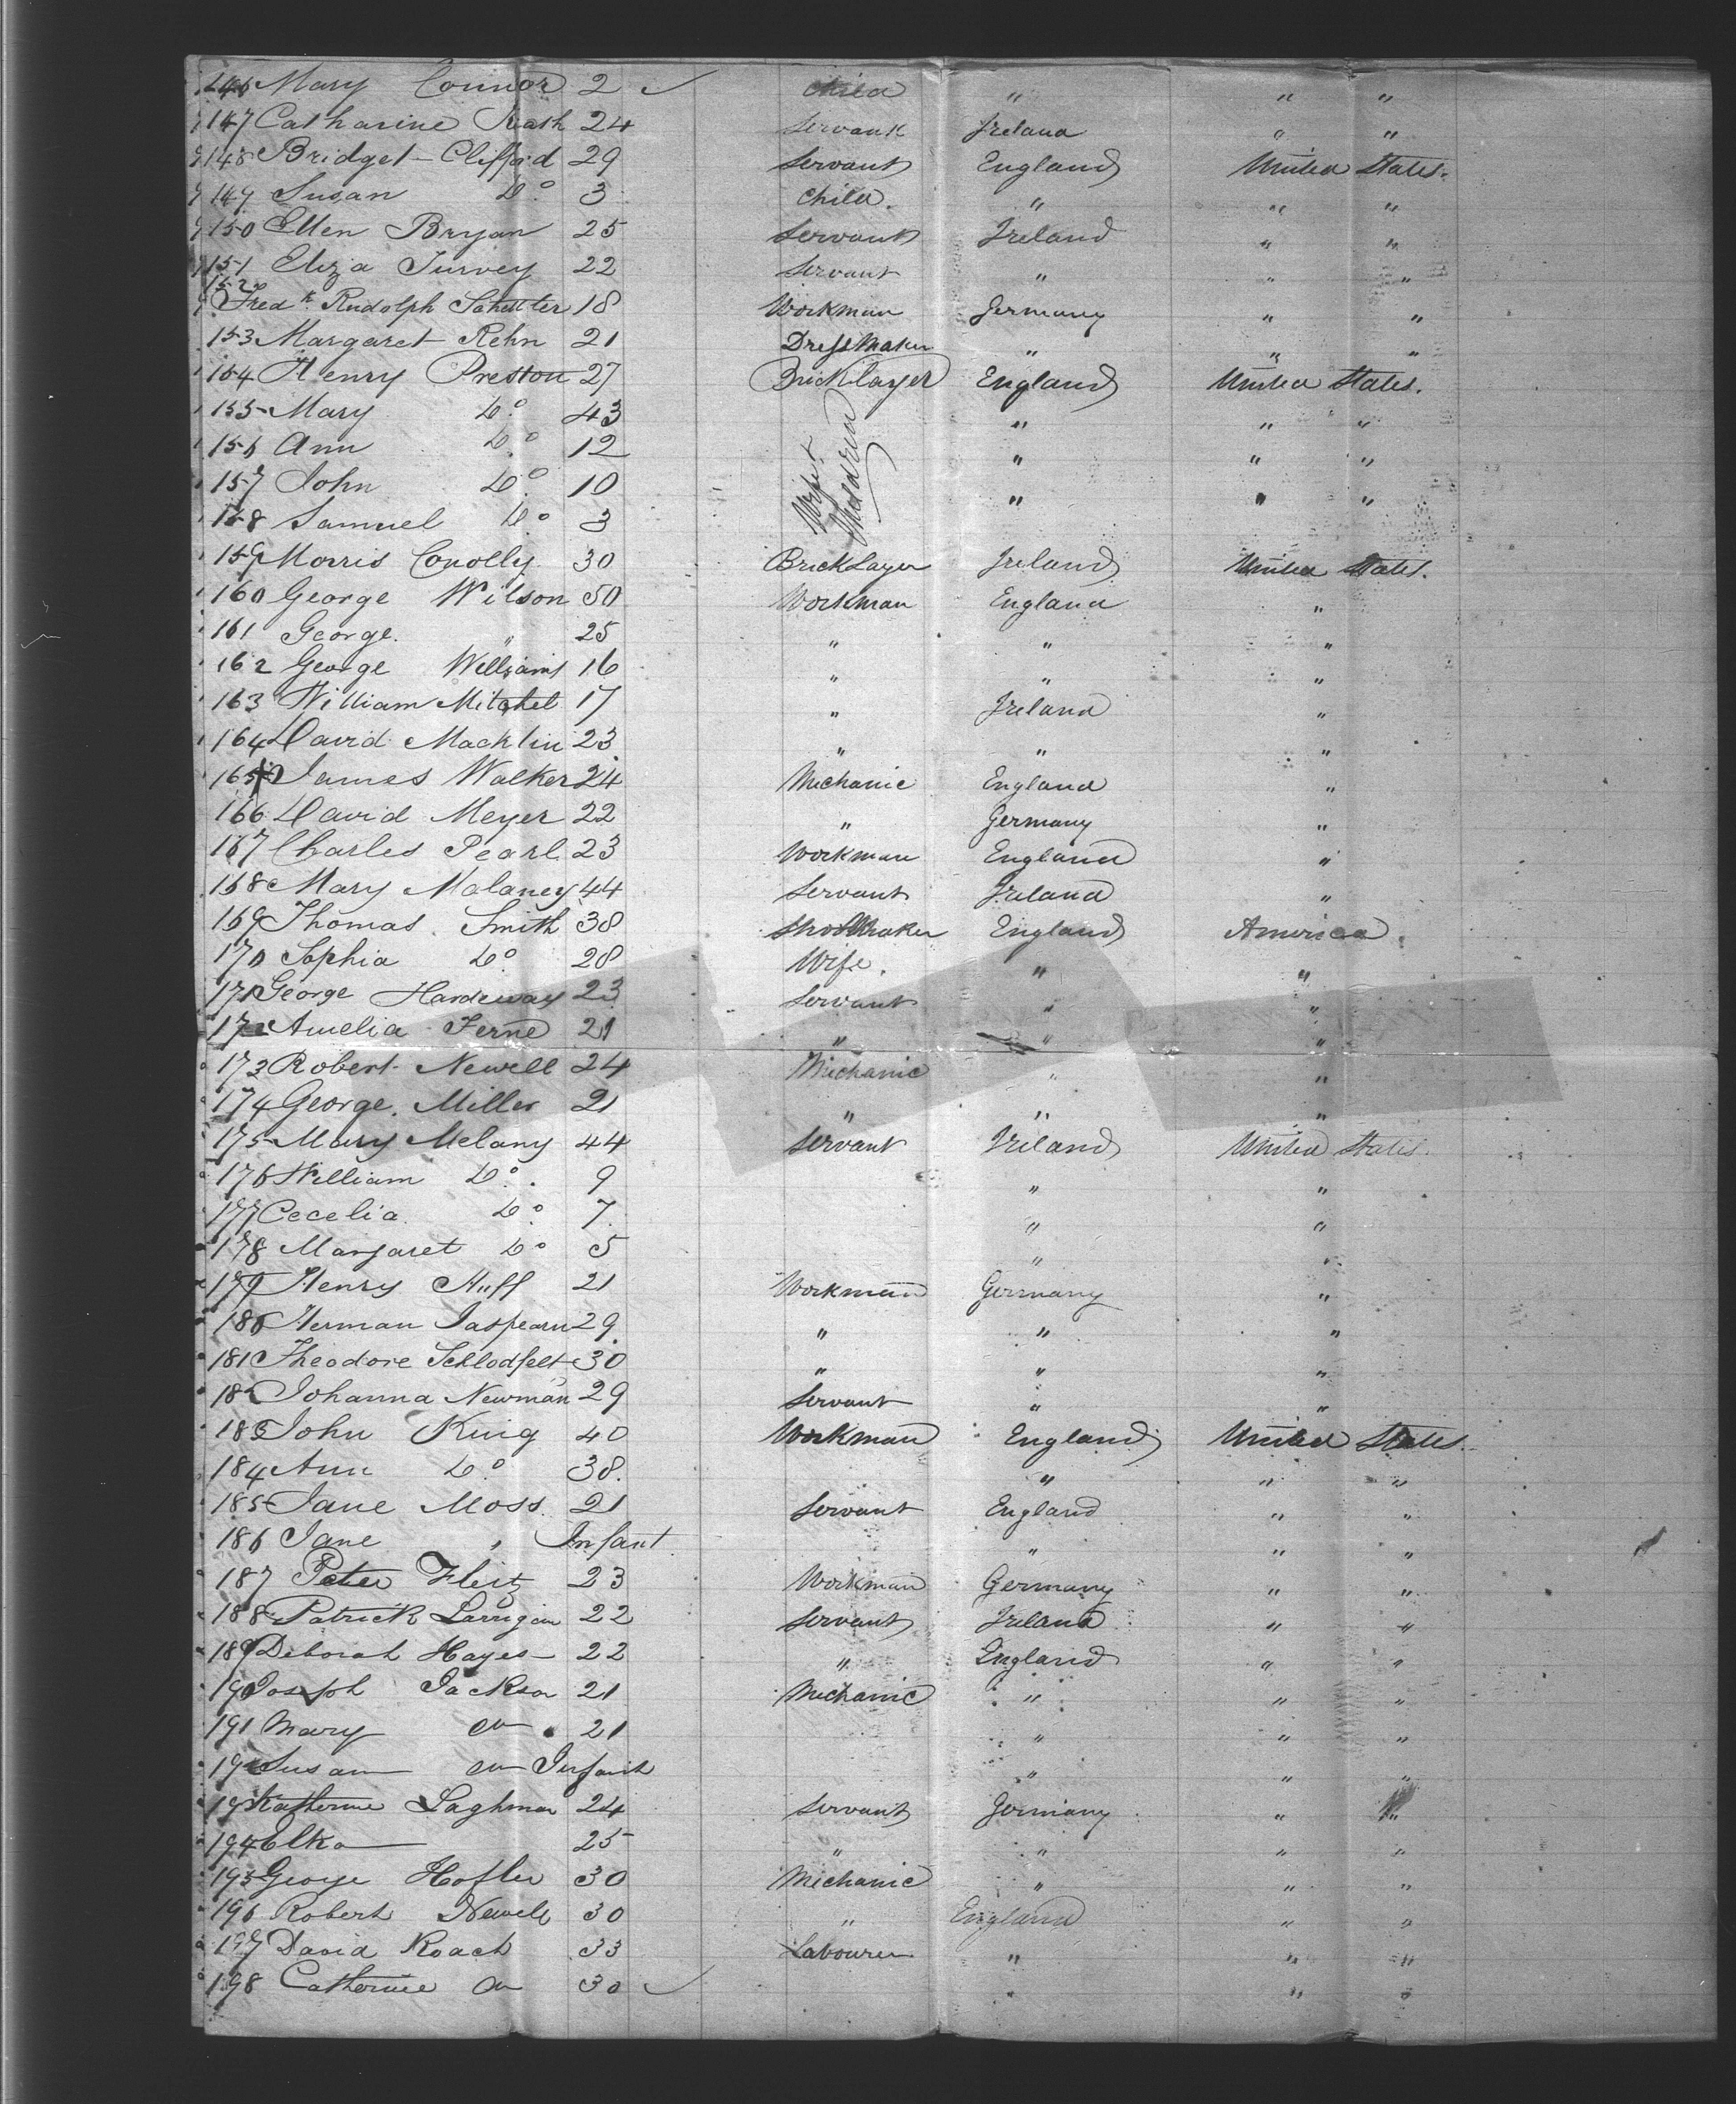 146 Mary Connor 2 ✓ Child " " "
147 Catharine Nash 24 Servant Ireland " "
148 Bridget Clifford 29 Servant England United States.
149 Susan Do. 3 Child. " " "
150 Ellen Bryan 25 Servant Ireland " "
151 Eliza Turvey 22 Servant " " "
152 Fredk. Rudolph 18 Workman Germany " "
153 Margaret Rehn 21 Dress Maker " " "
154 Henry Preston 27 Bricklayer England United States.
155 Mary Do. 43 Wife & Children " " "
156 Ann Do. 12 " " "
157 John Do. 10 " " "
158 Samuel Do. 3
159 Morris Conolly 30 Brick Layer Ireland United States.
160 George Wilson 50 Workman England "
161 George. " 25 " " "
162 George Williams 16 " " "
163 William Mitchel 17 " Ireland "
164 David Macklin 23 " " "
165 James Walker 24 Mechanic England "
166 David Meyer 22 " Germany "
167 Charles Pearl 23 Workman England "
168 Mary Malaney 44 Servant Ireland "
169 Thomas Smith 38 Shoe Maker England America.
170 Sophia Do. 28 Wife. " "
171 George Hardeway 23 Servant " "
172 Amelia Ferne 21 " " "
173 Robert Newell 24 Mechanic " "
174 George. Miller 21 " " "
175 Mary Melany 44 Servant Ireland United States.
176 William Do. 9 " "
177 Cecelia Do. 7. " "
178 Margaret Do. 5 " "
179 Henry Huff 21 Workman Germany "
180 Herman 29 " " "
181 Theodore Schlodfelt 30 " " "
182 Johanna Newman 29 Servant " "
183 John King 40 Workman England United States.
184 Ann Do. 38. " " "
185 Jane Moss 21 Servant England " "
186 Jane " Infant " " "
187 Peter Fleitz 23 Workman Germany " "
188 Patrick Larrigan 22 Servant Ireland " "
189 Deborah Hayes 22 " England " "
190 Joseph Jackson 21 Mechanic " " "
191 Mary Do 21 " " "
192 Susan Do Infant " " "
193 Katherine Laghman 24 Servant Germany " "
194 Elka 25 " " " "
195 George Hofler 30 Mechanic " " "
196 Robert Newell 30 " England " "
197 David Roach 33 Labourer " " "
198 Catherine Do 30 ✓ " " "